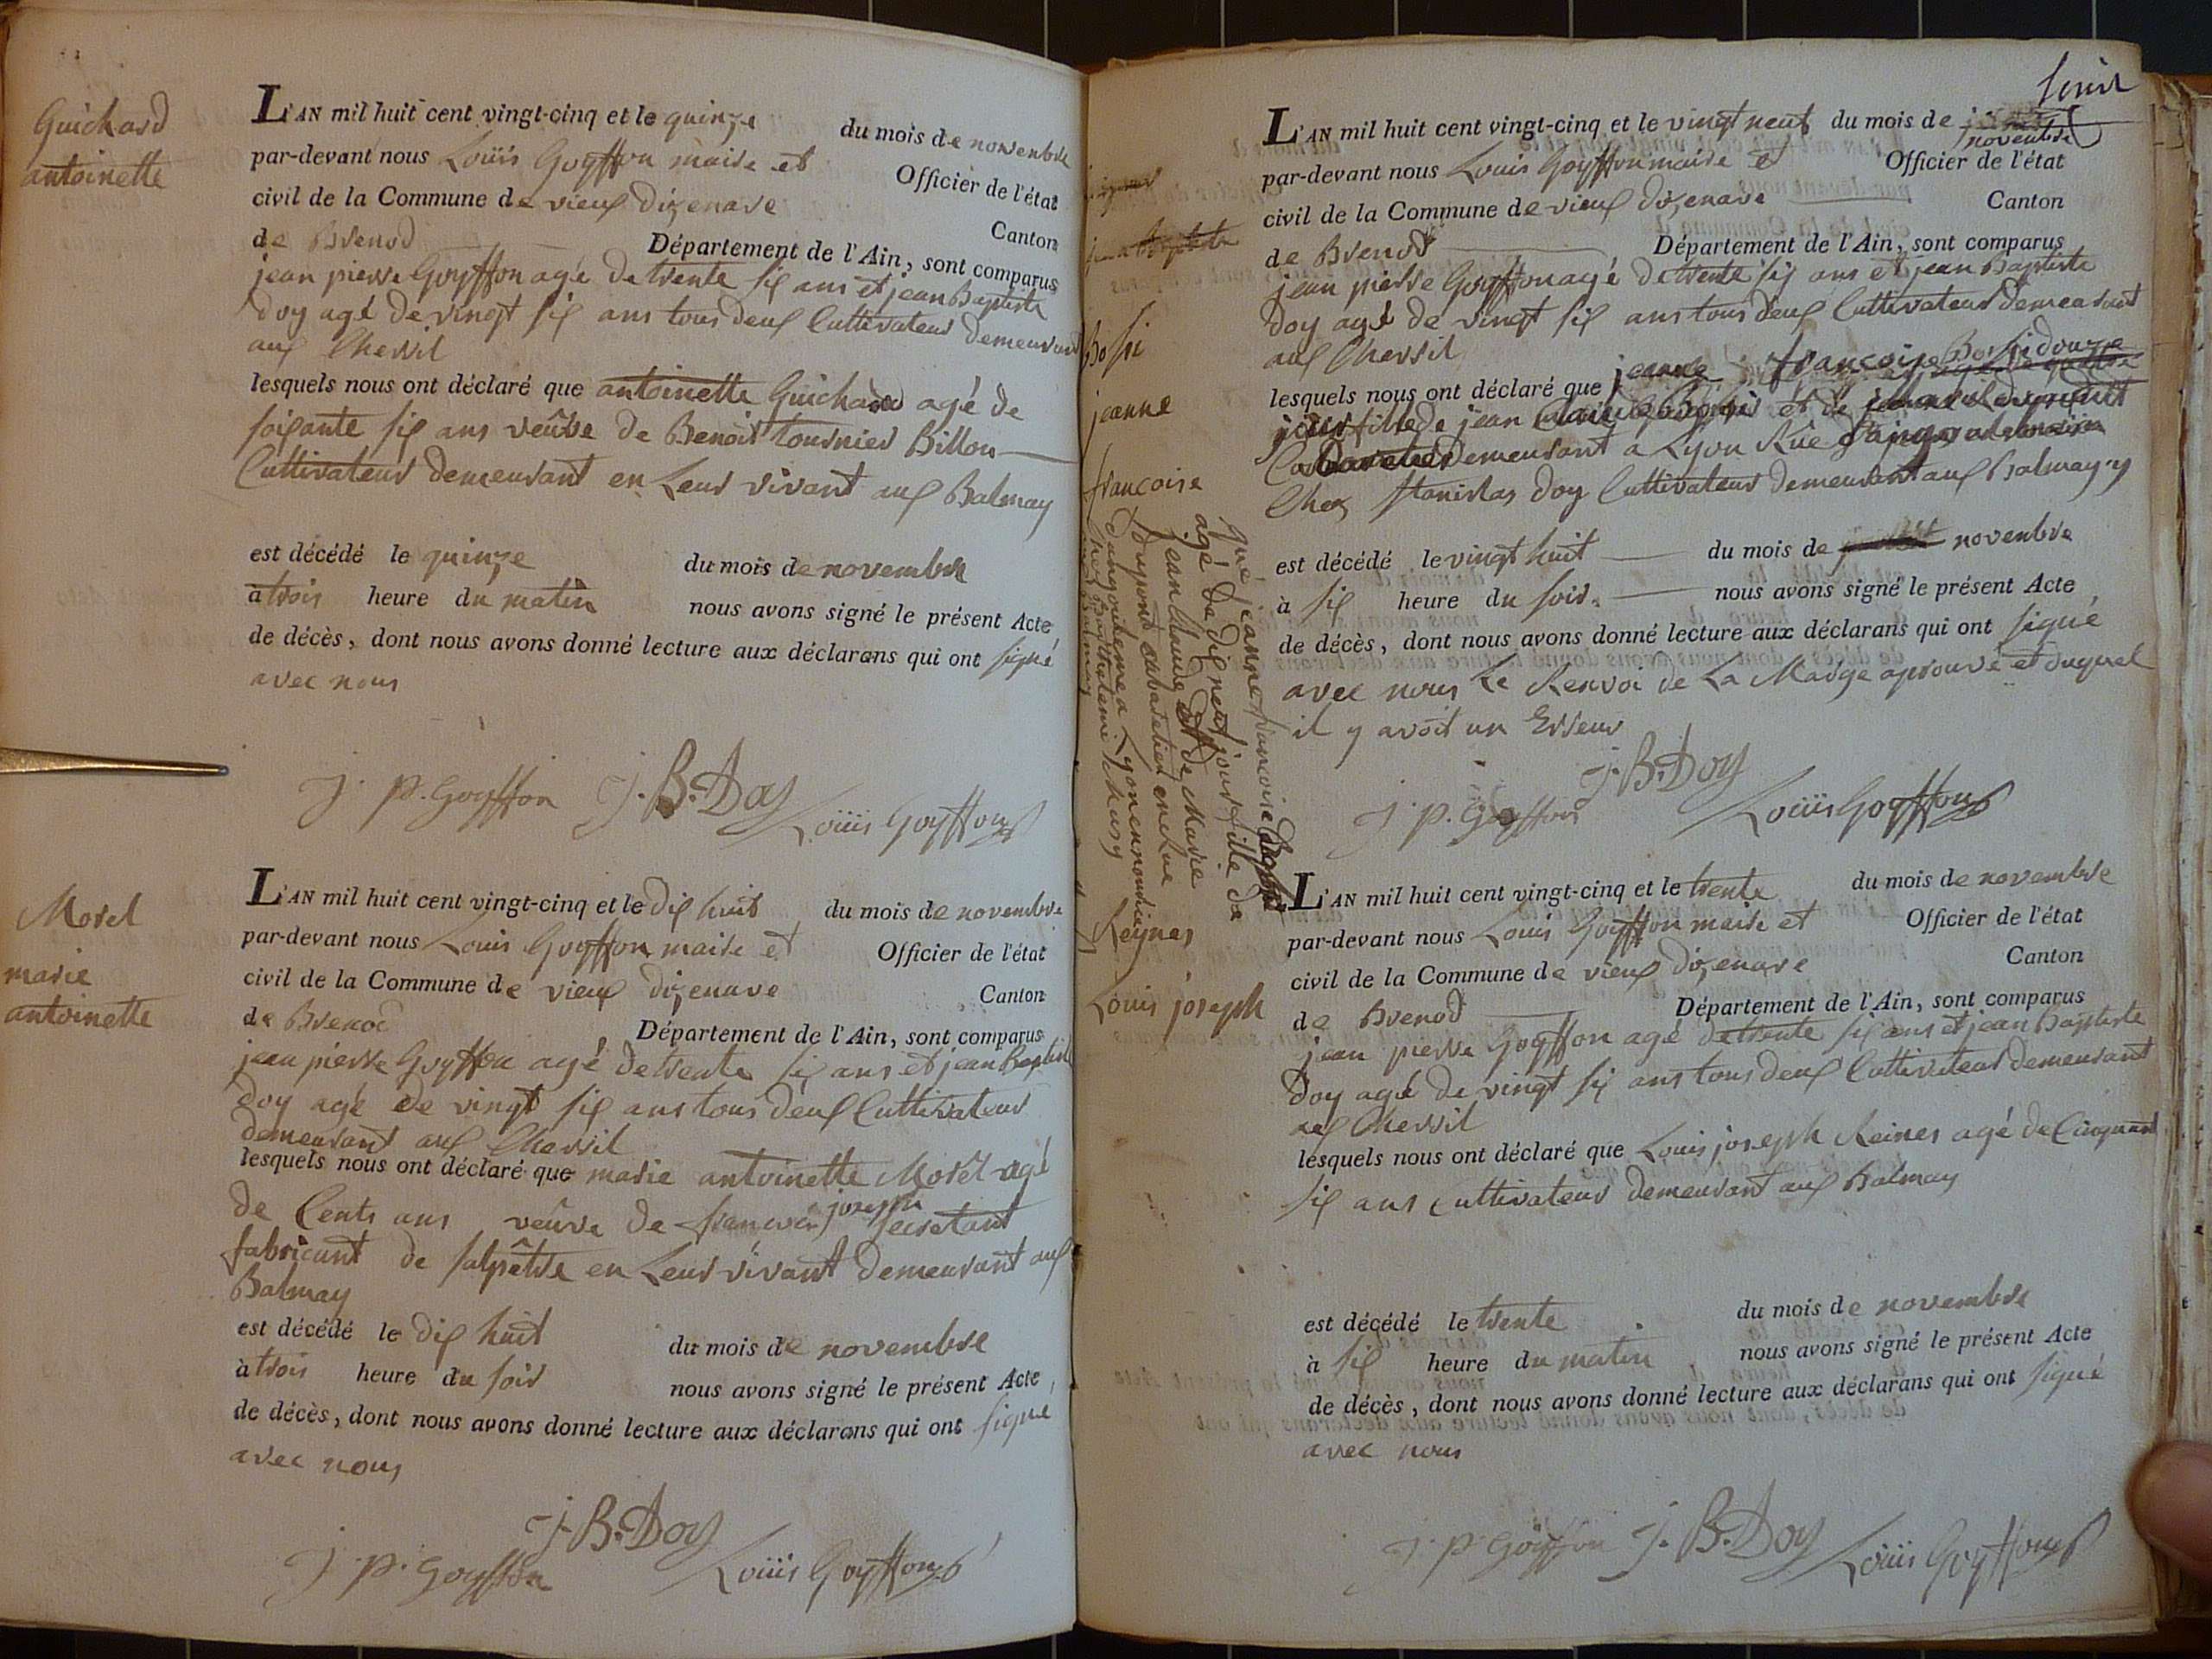 Guichard
antoinette
L'AN mil huit cent vingt-cinq et le quinze du mois de novenbre
par-devant nous Louis Goyffon maire et Officier de l'état
civil de la Commune de vieux dizenave Canton
de Brenod Département de l'Ain, sont comparus
jean pierre Goyffon agé de trente six ans et jean Baptiste
Doy agé de vingt six ans tous deux Cultivateur demeurant
aux Chevril
lesquels nous ont déclaré que antoinette Guichard agé de
soixante six ans veûve de Benoit tournier Billon
Cultivateur demeurant en Leur vivant aux Balmay
est décédé le quinze du mois de novembre
à trois heure du matin nous avons signé le présent Acte
de décès, dont nous avons donné lecture aux déclarans qui ont signé
avec nous
J. P. Goyffon J. B. Doy
Louis Goyffon
Morel
marie
antoinette
L'AN mil huit cent vingt-cinq et le dix huit du mois de novembre
par-devant nous Louis Goyffon maire et Officier de l'état
civil de la Commune de vieux dizenave Canton
de Brenod Département de l'Ain, sont comparus
jean pierre Goyffon agé de trente six ans et jean Baptiste
Doy agé de vingt six ans tous deux Cultivateur
demeurant aux Chevril
lesquels nous ont déclaré que marie antoinette Morel agé
de Cents ans veûve de francois joseph secretant
fabricant de salpêtre en Leur vivant demeurant aux
Balmay
est décédé le dix huit du mois de novembre
à trois heure du soir nous avons signé le présent Acte
de décès, dont nous avons donné lecture aux déclarans qui ont signé
avec nous
J. B. Doy
J. P. Goyffon Louis Goyffon
L'AN mil huit cent vingt-cinq et le vingt neuf du mois de
novembre
par-devant nous Louis Goyffon maire et Officier de l'état
civil de la Commune de vieux dizenave Canton
de Brenod Département de l'Ain, sont comparus
jean pierre Goyffon agé de trente six ans et jean Baptiste
Doy agé de vingt six ans tous deux Cultivateur demeurant
aux Chevril
lesquels nous ont déclaré que jeanne francoise
fille de jean et de
demeurant a Lyon Rûe
Chez Stanislas Doy Cultivateur demeurant aux Balmay
jeanne
francoise
que jeanne francoise
agé de dix neuf jours fille de
jean Claude et de Marie
cabaretier en Rue
a Lyon
est décédé le vingt huit du mois de novembre
à six heure du soir. nous avons signé le présent Acte
de décès, dont nous avons donné lecture aux déclarans qui ont signé
avec nous Le Renvoi de La Marge aprouvé et duquel
il y avoit un Erreur
J. B. Doy
J. P. Goyffon Louis Goyffon
Reynes
Louis joseph
L'AN mil huit cent vingt-cinq et le trente du mois de novembre
par-devant nous Louis Goyffon maire et Officier de l'état
civil de la Commune de vieux dizenave Canton
de Brenod Département de l'Ain, sont comparus
jean pierre Goyffon agé de trente six ans et jean Baptiste
Doy agé de vingt six ans tous deux Cultivateur demeurant
aux Chevril
lesquels nous ont déclaré que Louis joseph Reines agé de Cinquant
six ans Cultivateur demeurant aux Balmay
est décédé le trente du mois de novembre
à six heure du matin nous avons signé le présent Acte
de décès, dont nous avons donné lecture aux déclarans qui ont signé
avec nous
J. P. Goyffon J. B. Doy Louis Goyffon